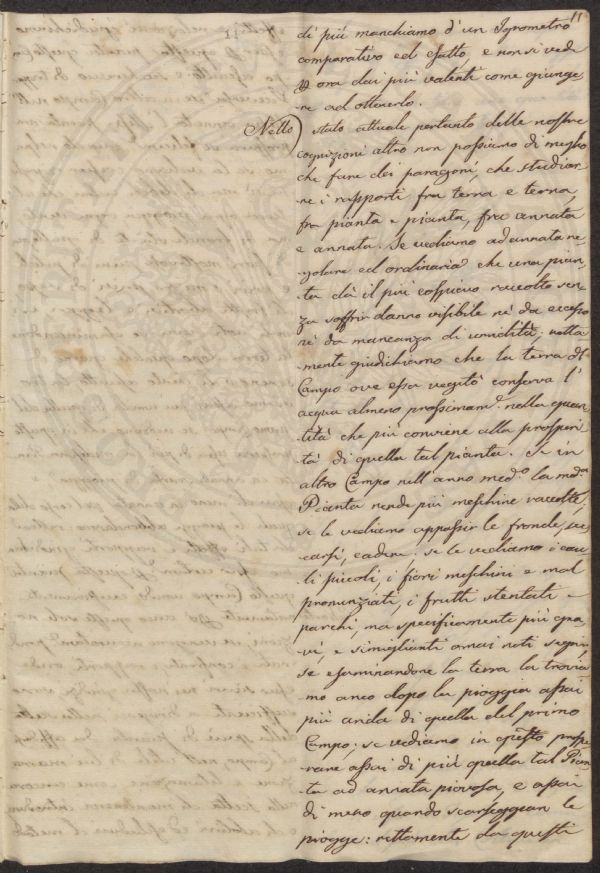 11
di più manchiamo d'un Igrometro
comparativo ed esatto, e non si vede
ora dai più valenti come giunge
re ad ottenerlo.
Nello stato attuale pertanto delle nostre
cognizioni altro non possiamo di meglio
che fare dei paragoni, che studiar
ne i rapporti fra terra e terra,
fra pianta e pianta, fra annata
e annata. Se vediamo ad annata re
golare ed ordinaria che una pian
ta dà il più cospicuo raccolto sen
za soffrir danno visibile nè da eccesso
nè da mancanza di umidità, retta
mente giudichiamo che la terra del
Campo ove essa vegetò conserva l'
acqua almeno prossimam.e nella quan
tità che più conviene alla prosperi
tà di quella tal pianta. Se in
altro Campo nell'anno med.o la med.a
Pianta rende più meschine raccolte,
se le vediamo appassir le fronde, sec
carsi, cadere: se le vediamo i cau
li piccoli, i fiori meschini e mal
pronunziati, i frutti stentati e
parchi, ma specificamente più gra
vi, e simiglianti omai noti segni,
se esaminandone la terra la trovia
mo anco dopo la pioggia assai
più arida di quella del primo
Campo; se vediamo in questo prospe
rare assai di più quella tal Pian
ta ad annata piovosa, e assai
di meno quando scarseggian le
piogge: rettamente da questi